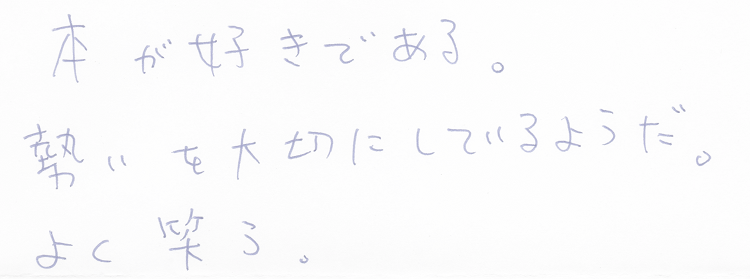 本が好きである。
勢いを大切にしているようだ。
よく笑う。